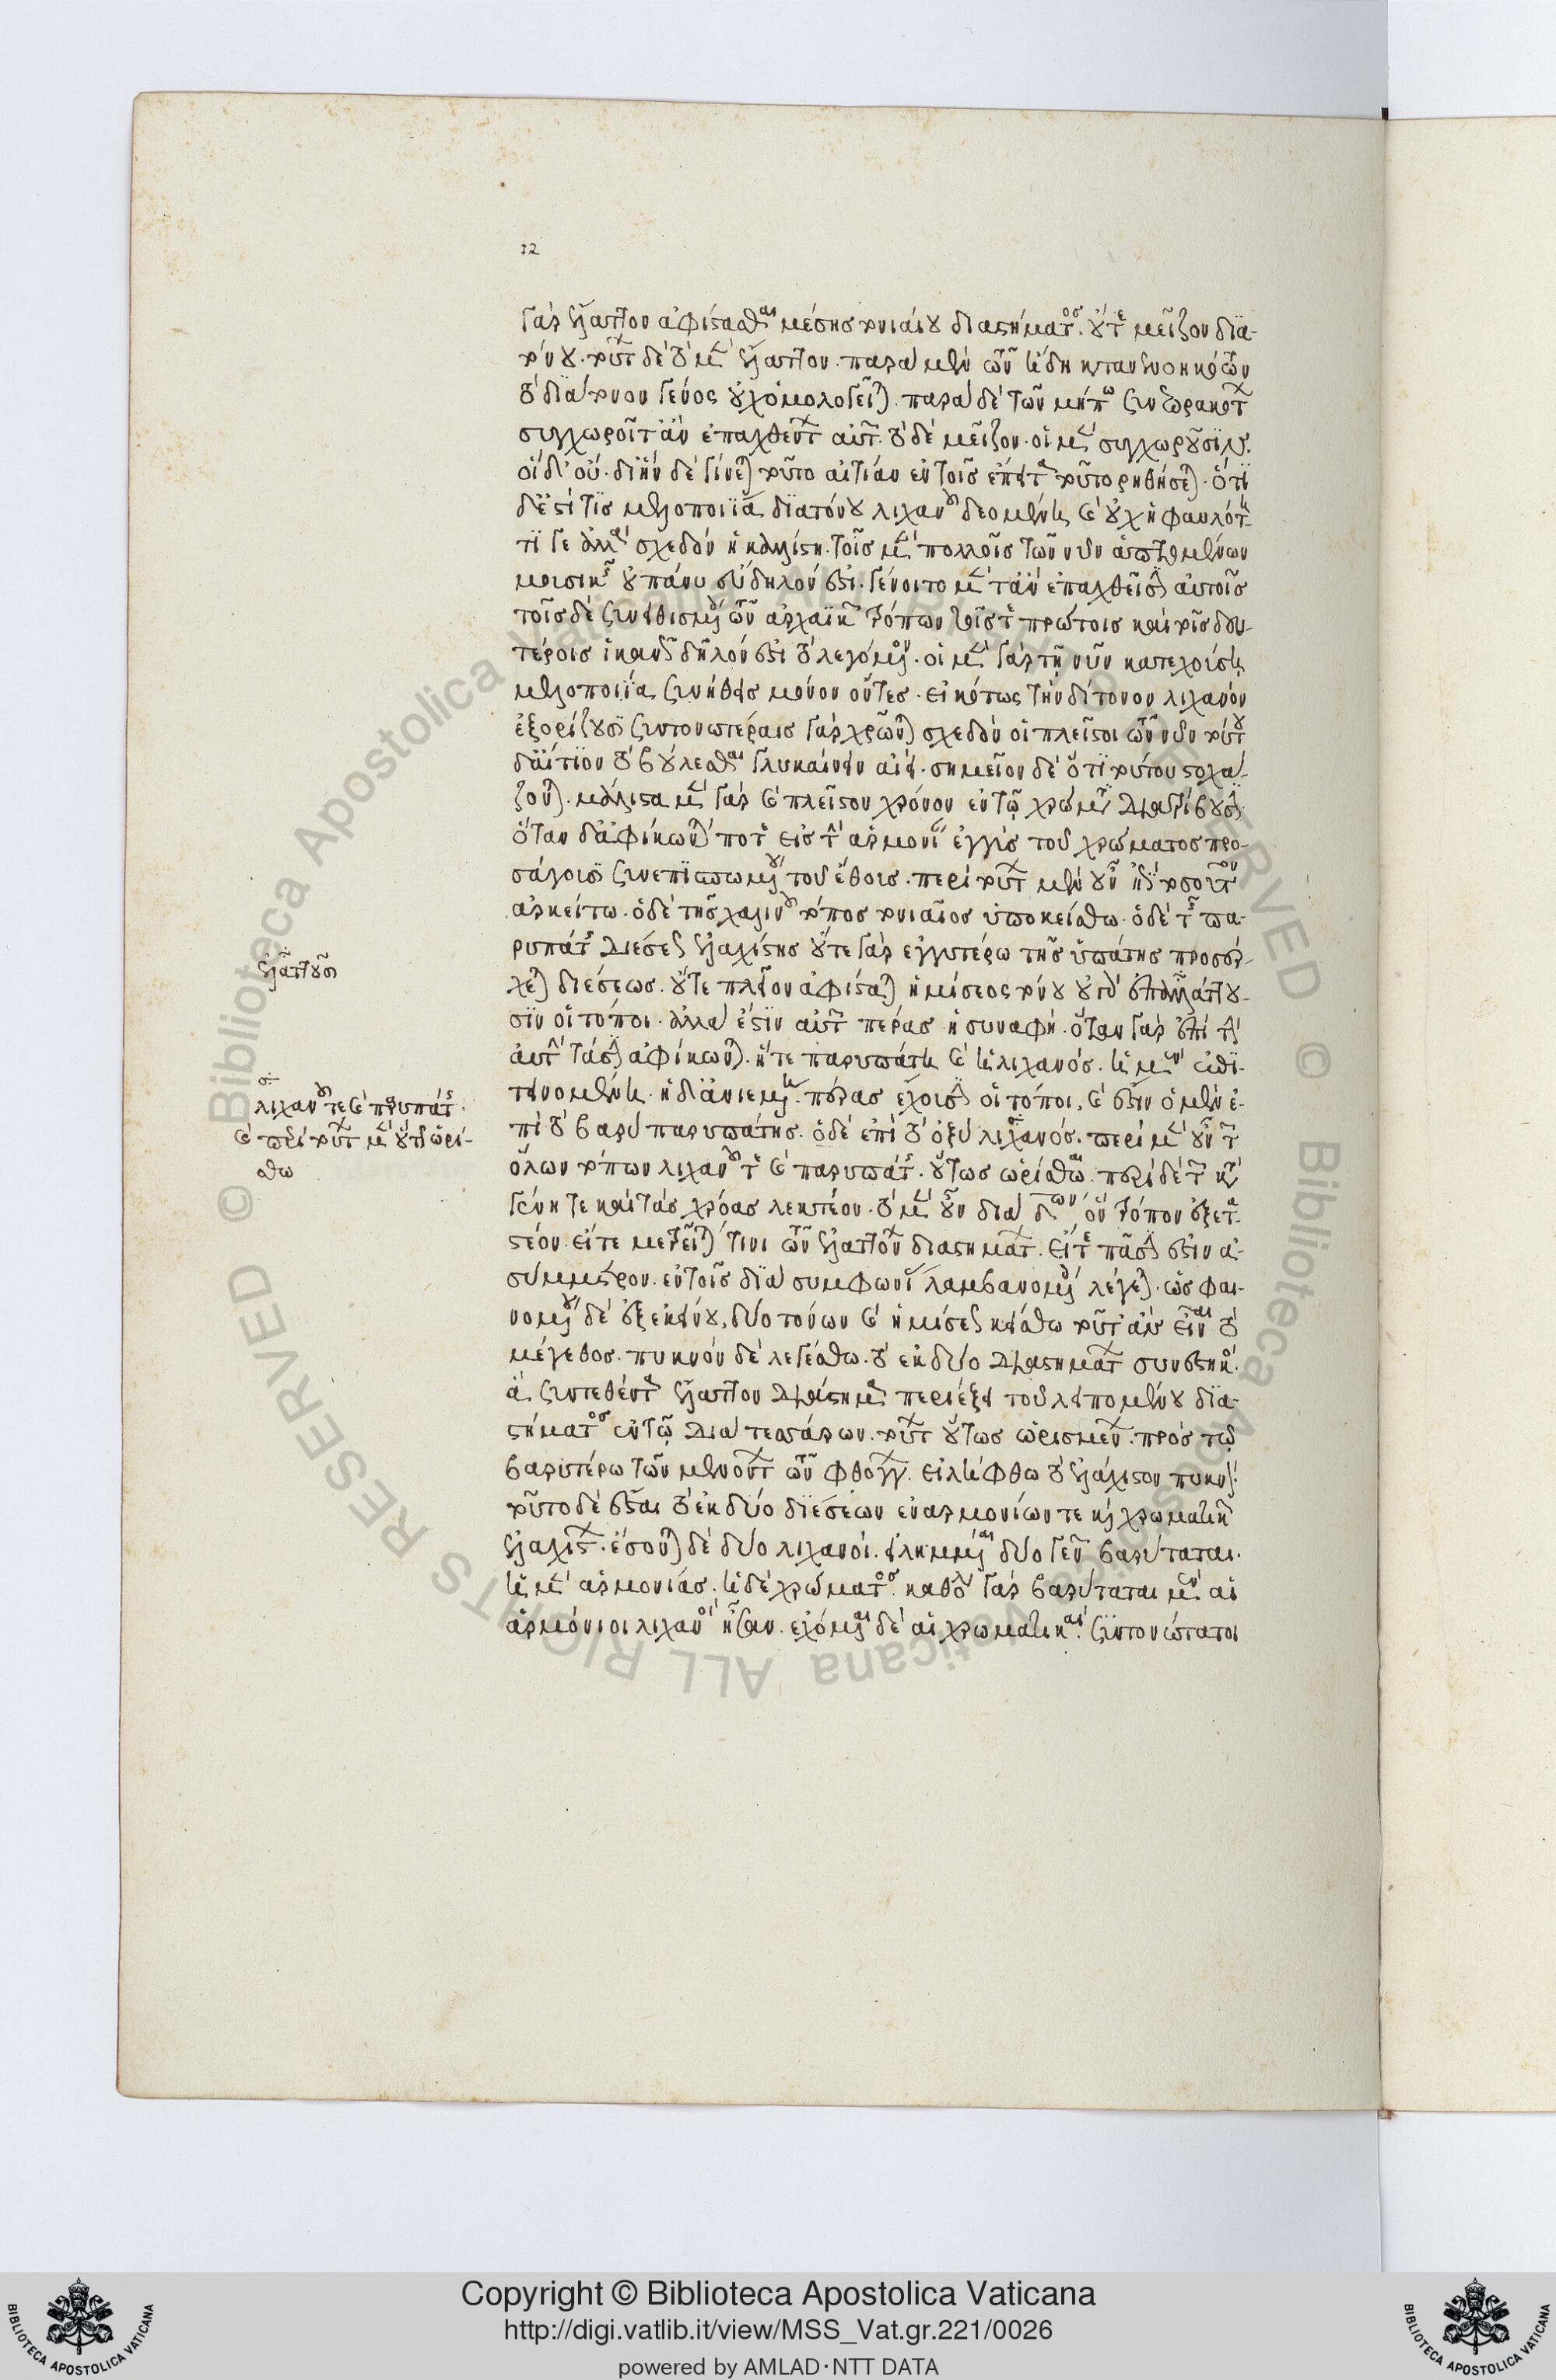 12
γὰρ ἔλαττον ἀφίστασθαι μέσης τονιαίου διαστήματος. οὔτε μεῖζον δια-
τόνου. τούτων δὲ τὸ μὲν ἔλαττον παρὰ μὲν τῶν ἤδη κατανενοηκότων
τὸ διάτονον γένος συγχωρεῖται. παρὰ δὲ τῶν μήπω συνεωρακότων
συγχωροῖτ' ἂν ἐπαχθέντων αὐτῶν. τὸ δὲ μεῖζον. οἱ μὲν συγχωροῦσιν.
οἱ δ' οὔ. δι' ἣν δὲ γίνεται τοῦτο αἰτίαν ἐν τοῖς ἔπειτα ῥηθήσεται. ὅτι
δ' ἔστι τις μελοποιία διτόνου λιχανοῦ δεομένη καὶ οὐχ ἡ φαυλοτά-
τη γε ἀλλὰ σχεδὸν ἡ καλλίστη. τοῖς μὲν πολλοῖς τῶν νῦν ἁπτομένων
μουσικῆς οὐ πάνυ εὔδηλόν ἐστι. γένοιτο μέντ' ἂν ἐπαχθεῖσιν αὐτοῖς
τοῖς δὲ συνειθισμένοις τῶν ἀρχαϊκῶν τρόπων τοῖς τε πρώτοις καὶ τοῖς δευ-
τέροις ἱκανῶς δῆλόν ἐστι τὸ λεγόμενον. οἱ μὲν γὰρ τῇ νῦν κατεχούσῃ
μελοποιίᾳ συνήθεις μόνον ὄντες. εἰκότως τὴν δίτονον λιχανὸν
ἐξορίζουσι συντονωτέραις γὰρ χρῶνται σχεδὸν οἱ πλεῖστοι τῶν νῦν τούτου
δ' αἴτιον τὸ βούλεσθαι γλυκαίνειν ἀεί. σημεῖον δὲ ὅτι τούτου στοχά-
ζονται. μάλιστα μὲν γὰρ καὶ πλεῖστον χρόνον ἐν τῷ χρώματι διατρίβουσιν
ὅταν δ' ἀφίκωνταί ποτε εἰς τὴν ἁρμονίαν ἐγγὺς τοῦ χρώματος προ-
σάγουσι συνεπισπωμένου τοῦ ἤθους. περὶ τούτων μὲν οὖν ἐπὶ τοσοῦτον
ἀρκείτω. ὁ δὲ τῆς λιχανοῦ τόπος τονιαῖος ὑποκείσθω. ὁ δὲ τῆς πα-
ρυπάτης διέσεως ἐλαχίστης οὔτε γὰρ ἐγγυτέρω τῆς ὑπάτης προσέρ-
χεται διέσεως. οὔτε πλεῖον ἀφίσταται ἡμίσεος τόνου οὐ γὰρ ἐπαλλάττου-
σιν οἱ τόποι. ἀλλὰ ἔστιν αὐτῶν πέρας ἡ συναφή. ὅταν γὰρ ἐπὶ τὴν
αὐτὴν τάσιν ἀφίκωνται. ἥ τε παρυπάτη καὶ ἡ λιχανός. ἡ μὲν ἐπι-
τεινομένη. ἡ δ' ἀνιεμένη. πέρας ἔχουσιν οἱ τόποι, καὶ ἔστιν ὁ μὲν ἐ-
πὶ τὸ βαρὺ παρυπάτης. ὁ δὲ ἐπὶ τὸ ὀξὺ λιχανός. περὶ μὲν οὖν τῶν
ὅλων τόπων λιχανοῦ τε καὶ παρυπάτης. οὕτως ὡρίσθω. περὶ δὲ τῶν κατὰ
γένη τε καὶ τὰς χρόας λεκτέον. τὸ μὲν οὖν διὰ τεσσάρων ὃν τρόπον ἐξετα-
στέον εἴτε μετρεῖταί τινι τῶν ἐλαττόνων διαστημάτων. εἴτε πᾶσίν ἐστιν ἀ-
σύμμετρον. ἐν τοῖς διὰ συμφωνίας λαμβανομένοις λέγεται. ὡς φαι-
νομένου δὲ ἐξ ἐκείνου, δύο τόνων καὶ ἡμίσεος κείσθω τοῦτ' ἂν εἶναι τὸ
μέγεθος. πυκνὸν δὲ λεγέσθω. τὸ ἐκ δύο διαστημάτων συνεστηκός.
ἃ συντεθέντα ἔλαττον διάστημα περιέξει τοῦ λειπομένου δια-
στήματος ἐν τῷ διὰ τεσσάρων. τούτων οὕτως ὡρισμένων. πρὸς τῷ
βαρυτέρῳ τῶν μενόντων τῶν φθόγγων. εἰλήφθω τὸ ἐλάχιστον πυκνόν.
τοῦτο δὲ ἔσται τὸ ἐκ δύο διέσεων ἐναρμονίων τε καὶ χρωματικῶν
ἐλαχίστων. ἔσονται δὲ δύο λιχανοί. εἰλημμέναι δύο γενῶν βαρύταται.
ἡ μὲν ἁρμονίας. ἡ δὲ χρώματος. καθόλου γὰρ βαρύταται μὲν αἱ
ἁρμόνιοι λιχανοὶ ἦσαν. ἐχόμεναι δὲ αἱ χρωματικαί. συντονώταται
ἐλάττους
λιχανοῦ τε καὶ παρυπάτης.
καὶ περὶ τούτων μὲν οὕτως ὡρί-
σθω
Copyright © Biblioteca Apostolica Vaticana
http://digi.vatlib.it/view/MSS_Vat.gr.221/0026
powered by AMLAD·NTT DATA
BIBLIOTECA APOSTOLICA VATICANA
BIBLIOTECA APOSTOLICA VATICANA
© Biblioteca Apostolica Vaticana ALL RIGHTS RESERVED